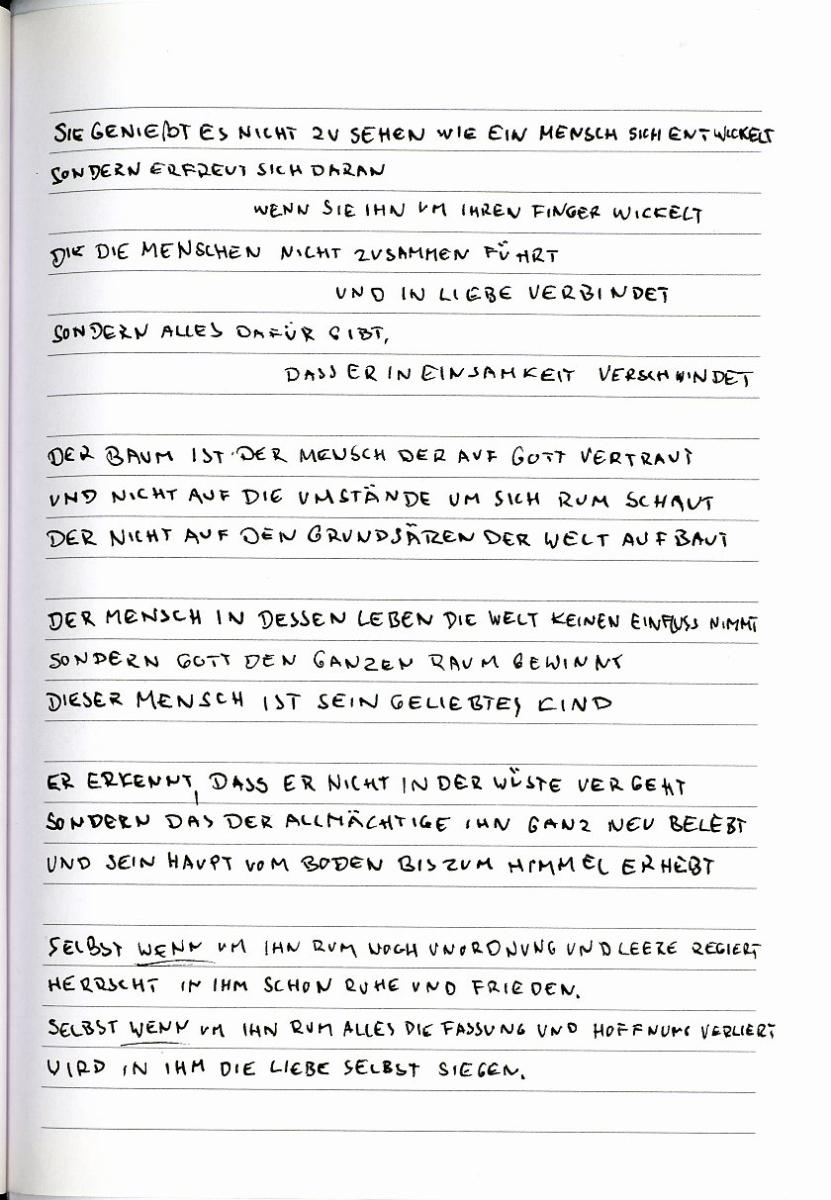 SIE GENIEßT ES NICHT ZU SEHEN WIE EIN MENSCH SICH ENTWICKELT
SONDERN ERFREUT SICH DARAN
WENN SIE IHN UM IHREN FINGER WICKELT
DIE DIE MENSCHEN NICHT ZUSAMMEN FÜHRT
UND IN LIEBE VERBINDET
SONDERN ALLES DAFÜR GIBT,
DASS ER IN EINSAMKEIT VERSCHWINDET
DER BAUM IST DER MENSCH DER AUF GOTT VERTRAUT
UND NICHT AUF DIE UMSTÄNDE UM SICH RUM SCHAUT
DER NICHT AUF DEN GRUNDSÄZEN DER WELT AUFBAUT
DER MENSCH IN DESSEN LEBEN DIE WELT KEINEN EINFLUSS NIMMT
SONDERN GOTT DEN GANZEN RAUM GEWINNT
DIESER MENSCH IST SEIN GELIEBTES KIND
ER ERKENNT, DASS ER NICHT IN DER WÜSTE VERGEHT
SONDERN DAS DER ALLMÄCHTIGE IHN GANZ NEU BELEBT
UND SEIN HAUPT VOM BODEN BIS ZUM HIMMEL ERHEBT
SELBST WENN UM IHN RUM NOCH UNORDNUNG UND LEERE REGIERT
HERRSCHT IN IHM SCHON RUHE UND FRIEDEN.
SELBST WENN UM IHN RUM ALLES DIE FASSUNG UND HOFFNUNG VERLIERT
WIRD IN IHM DIE LIEBE SELBST SIEGEN.